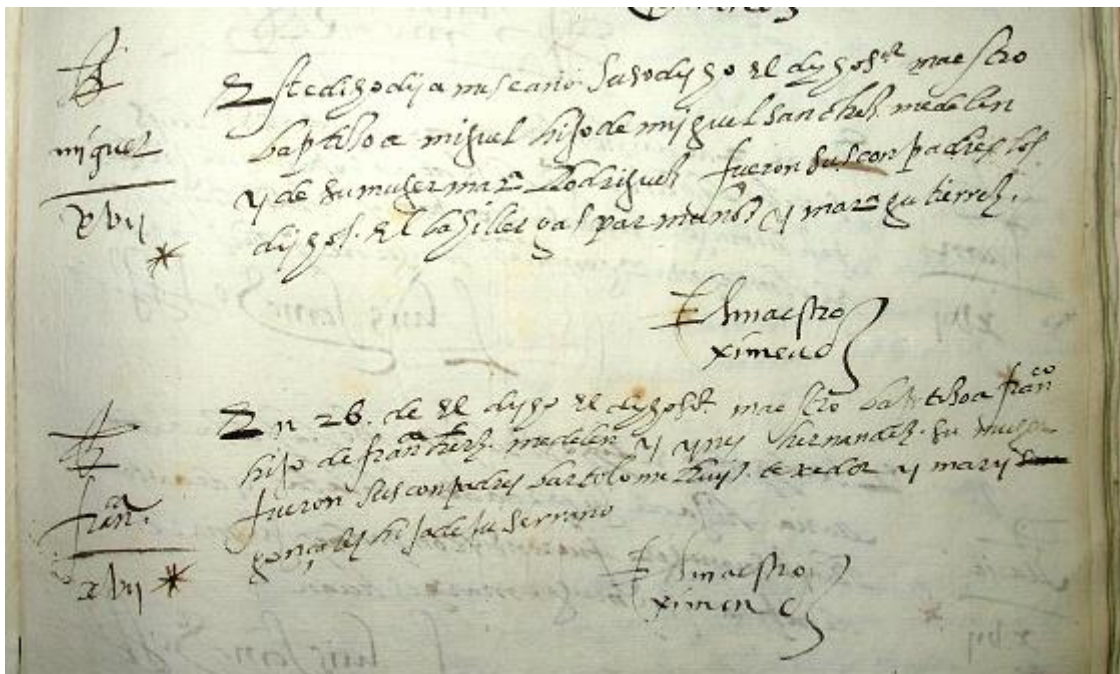 miguel
xvij
Este dicho dia mes e año susodicho el dicho sor maestro
baptizo a miguel hijo de miguel sanchez medelin
y de su muger mara Rodriguez fueron sus conpadres los
dichos el bachiller gaspar muñoz y mara gutierrez.
El maestro
ximenez
franco
xvij
En 26. de el dicho el dicho sor maestro babtizo a franco
hijo de franco herrz. medelin y ynes hernandez su muger
fueron sus conpadres bartolome Ruyz texedor y mary
gonçalez hija de ju serrano
El maestro
ximenez